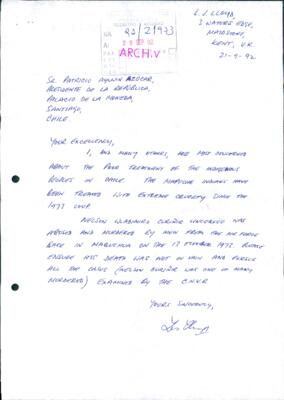 L. J. LLOYD,
3 NATURE EDGE,
MAIDSTONE,
KENT, U.K.
21-9-92
92/21973
28 SEP 92
ARCHIVO
SR. PATRICIO AYLWIN AZOCAR,
PRESIDENTE DE LA REPÚBLICA,
PALACIO DE LA MONEDA,
SANTIAGO,
CHILE.
YOUR EXCELLENCY,
I, AND MANY OTHERS, ARE MOST CONCERNED
ABOUT THE POOR TREATMENT OF THE INDIGENOUS
PEOPLES IN CHILE. THE MAPUCHE INDIANS HAVE
BEEN TREATED WITH EXTREME CRUELTY SINCE THE
1973 COUP.
NELSON WLADIMIRO CURIÑIR LINCOQUEO WAS
ABUSED AND MURDERED BY MEN FROM THE AIR FORCE
BASE IN MAQUEHUA ON THE 1973. PLEASE
ENSURE HIS DEATH WAS NOT IN VAIN AND
ALL THE CASES (NELSON CURIÑIR WAS ONE OF MANY
MURDERED) EXAMINED BY THE C.N.V.R.
YOURS SINCERELY,